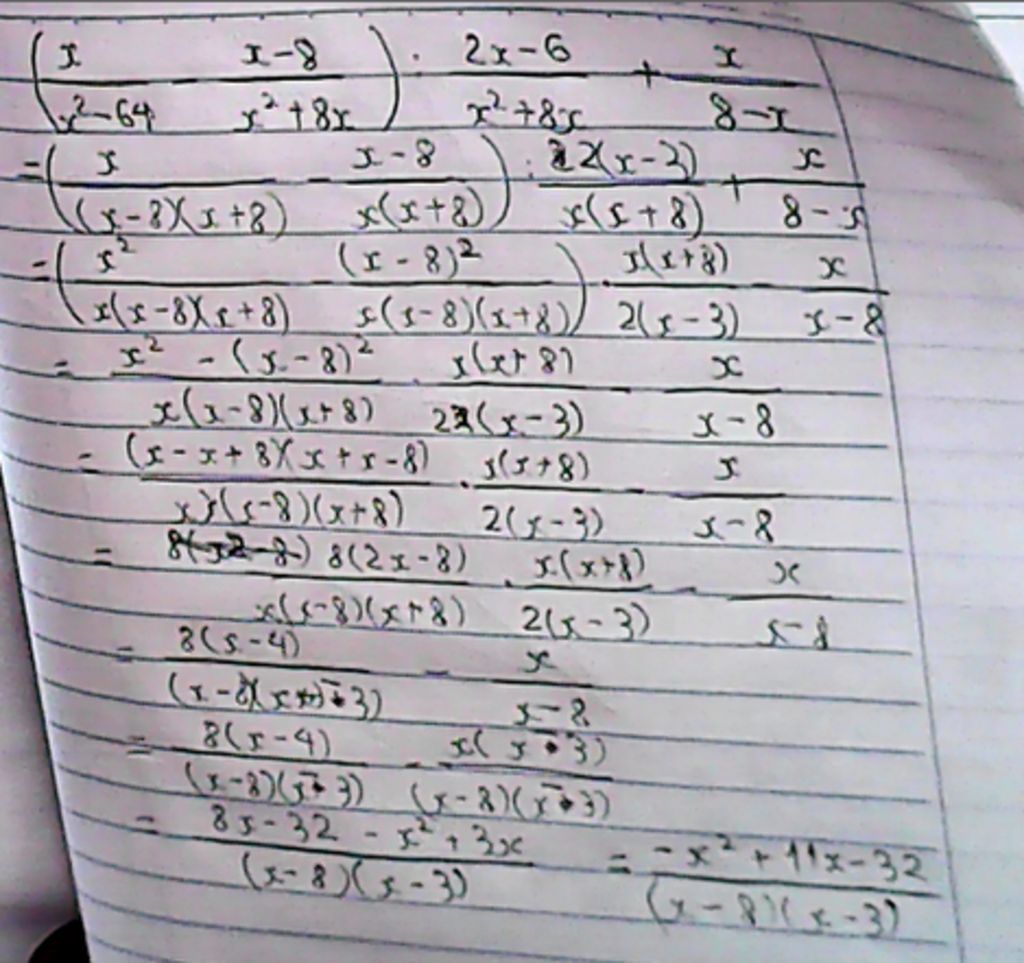 (x/(x²-64) - (x-8)/(x²+8x)) : (2x-6)/(x²+8x) + x/(8-x)
= (x/((x-8)(x+8)) - (x-8)/(x(x+8))) : 2(x-3)/(x(x+8)) + x/(8-x)
= (x²/(x(x-8)(x+8)) - (x-8)²/(x(x-8)(x+8))) · x(x+8)/(2(x-3)) - x/(x-8)
= (x² - (x-8)²)/(x(x-8)(x+8)) · x(x+8)/(2(x-3)) - x/(x-8)
= (x-x+8)(x+x-8)/(x(x-8)(x+8)) · x(x+8)/(2(x-3)) - x/(x-8)
= 8(2x-8)/(x(x-8)(x+8)) · x(x+8)/(2(x-3)) - x/(x-8)
= 8(x-4)/((x-8)(x-3)) - x/(x-8)
= 8(x-4)/((x-8)(x-3)) - x(x-3)/((x-8)(x-3))
= (8x-32-x²+3x)/((x-8)(x-3)) = (-x²+11x-32)/((x-8)(x-3))